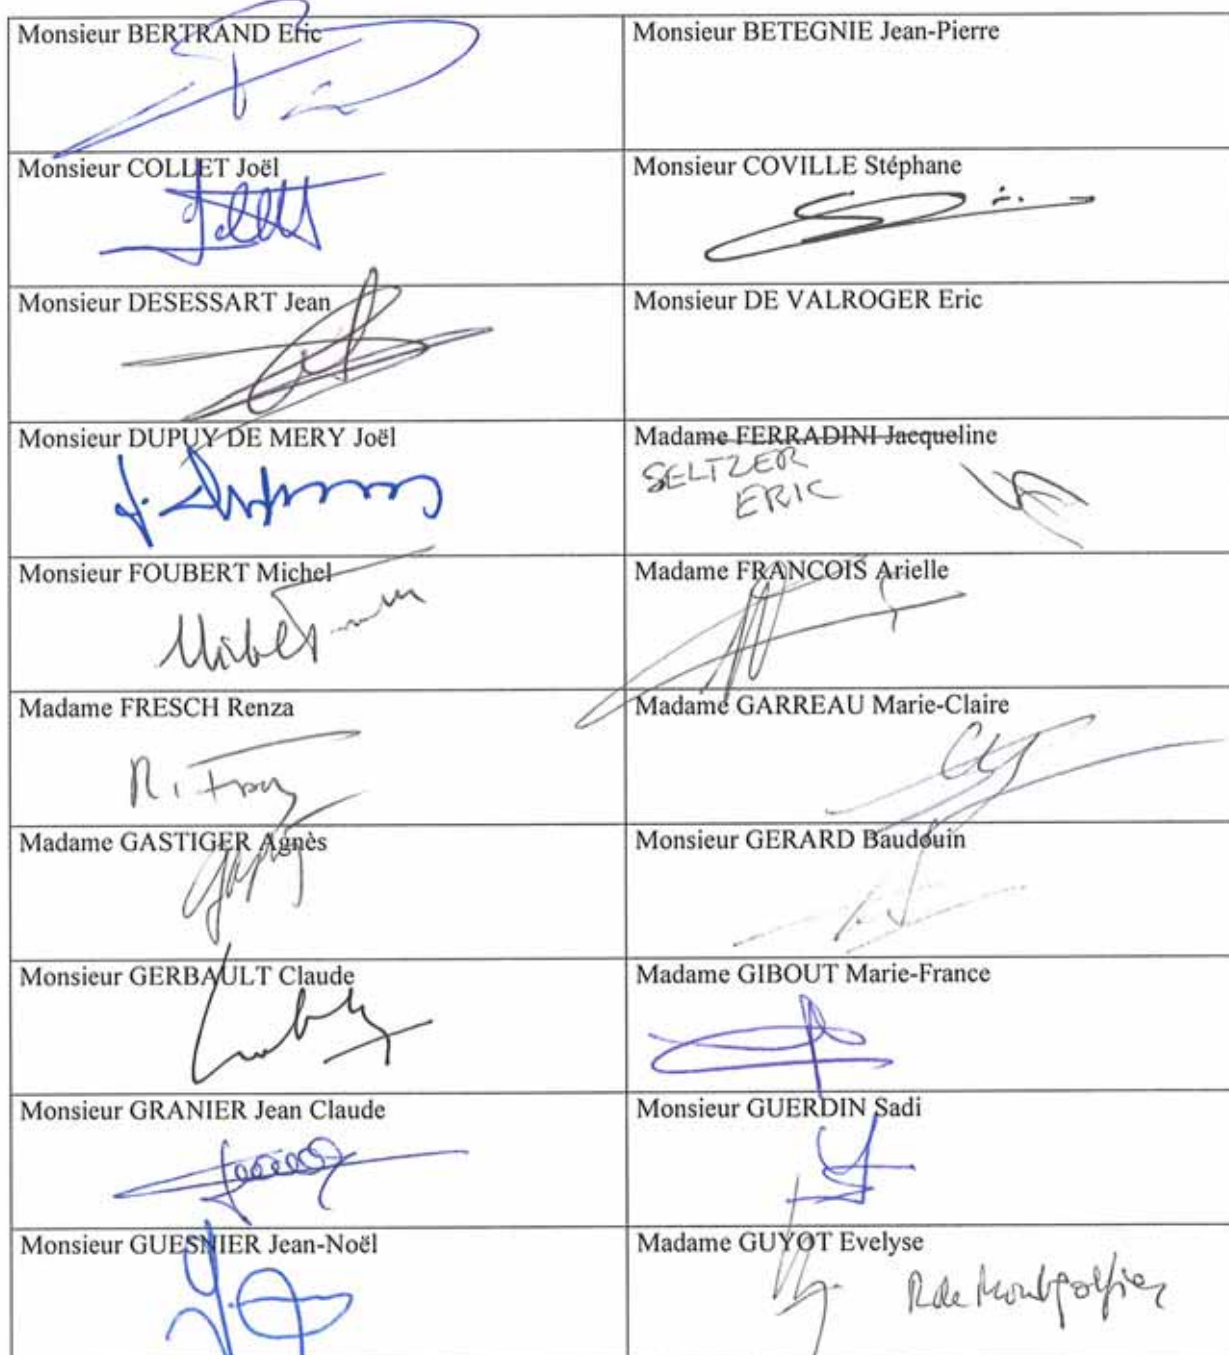 Monsieur BERTRAND Eric
Monsieur BETEGNIE Jean-Pierre
Monsieur COLLET Joël
Monsieur COVILLE Stéphane
Monsieur DESESSART Jean
Monsieur DE VALROGER Eric
Monsieur DUPUY DE MERY Joël
Madame FERRADINI Jacqueline
SELTZER
ERIC
Monsieur FOUBERT Michel
Madame FRANCOIS Arielle
Madame FRESCH Renza
Madame GARREAU Marie-Claire
Madame GASTIGER Agnès
Monsieur GERARD Baudouin
Monsieur GERBAULT Claude
Madame GIBOUT Marie-France
Monsieur GRANIER Jean Claude
Monsieur GUERDIN Sadi
Monsieur GUESNIER Jean-Noël
Madame GUYOT Evelyse
R de Montgolfier